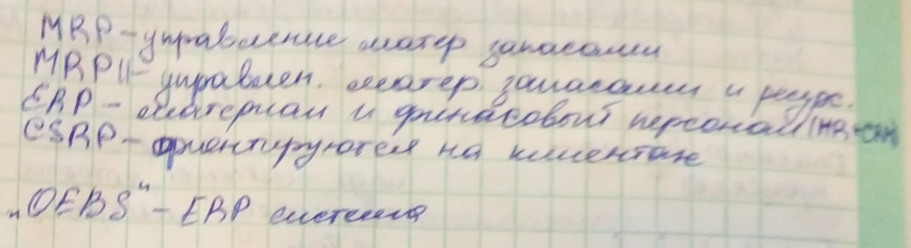 MRP - управление матер запасами
MRP II - управлен. матер. запасами и ресурс.
ERP - материал и финасовый персонал (HR + CRM)
CSRP - ориентируются на клиентах
"OEBS" - ERP система